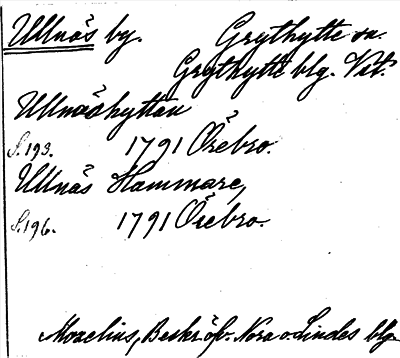 Ullnäs by. Grythytte sn.
Grythytte blg. Vst.
Ullnäshyttan
S. 193. 1791 Örebro.
Ullnäs Hammare,
S. 196. 1791 Örebro.
Morelius, Beskr. öfv. Nora o. Lindes blg.